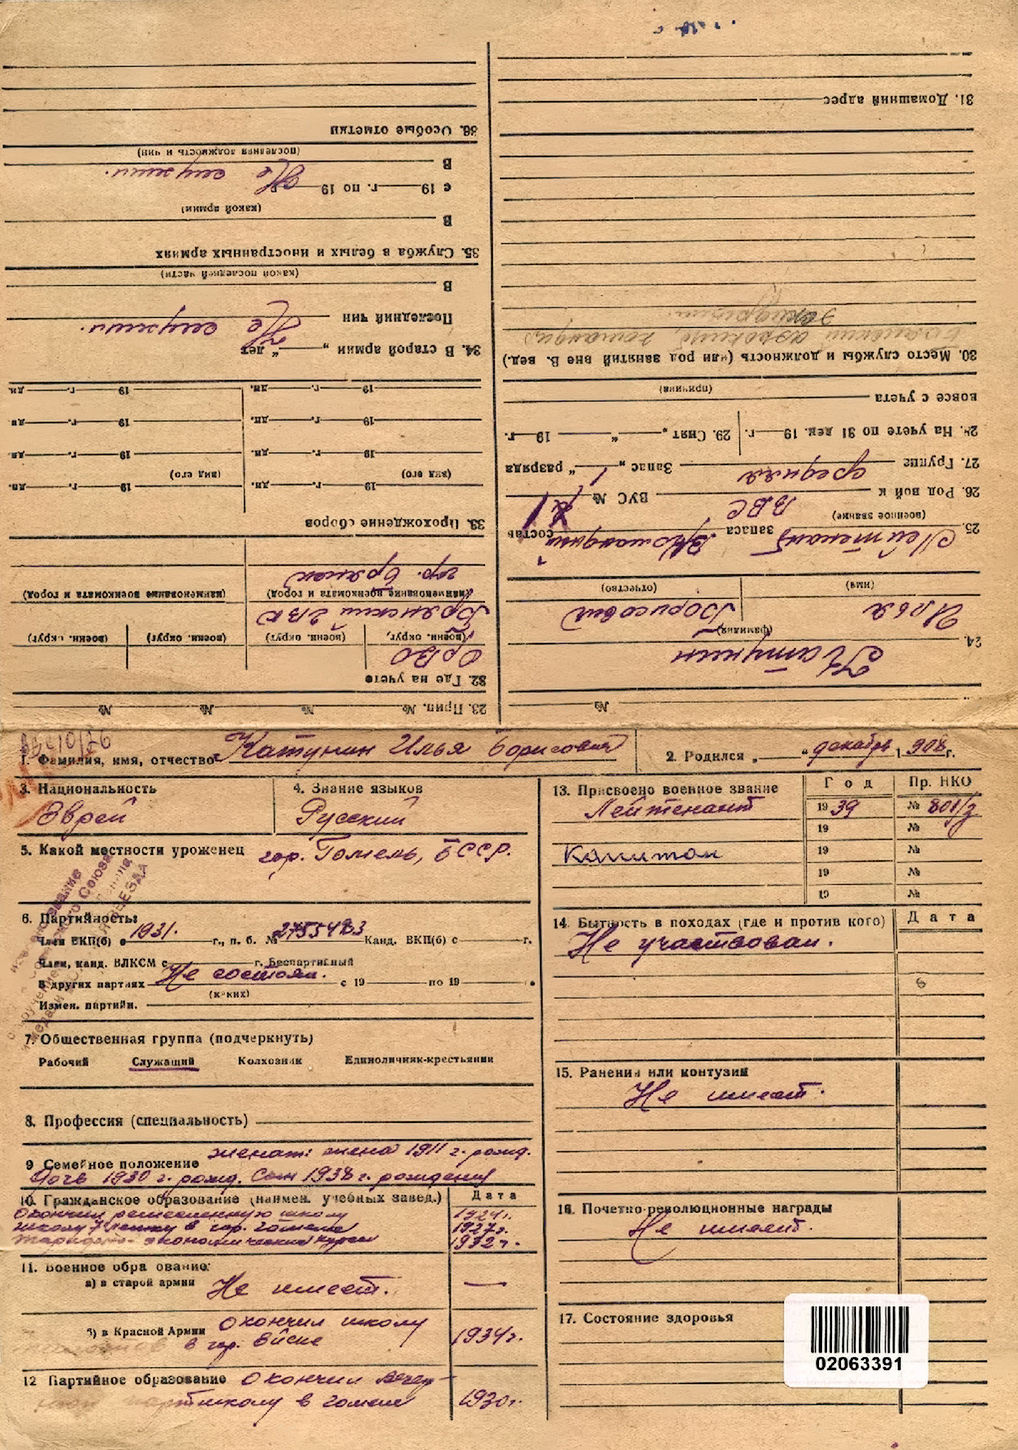 1. Фамилия, имя, отчество Катунин Илья Борисович
2. Родился „ декабрь 1908 г.
3. Национальность
Еврей
4. Знание языков
Русский
5. Какой местности уроженец гор. Гомель, БССР.
6. Партийность:
Член ВКП(б) с 1931. г., п. б. № 2755483 Канд. ВКП(б) с г.
Член, канд. ВЛКСМ с г. Беспартийный
В других партиях Не состоял. с 19 по 19
(каких)
Измен. партийн.
7. Общественная группа (подчеркнуть)
Рабочий Служащий Колхозник Единоличник-крестьянин
8. Профессия (специальность)
9 Семейное положение женат: жена 1911 г. рожд.
Дочь 1930 г. рожд. Сын 1938 г. рождения
10. Гражданское образование (наимен. учебных завед.) Дата
Окончил ремесленную школу 1924г.
школу 7 летку в гор. Гомеле 1927г.
экономические курсы 1932г.
11. Военное образование:
а) в старой армии Не имеет. —
б) в Красной Армии окончил школу
в гор. Ейске 1934г.
12 Партийное образование Окончил вечер-
нюю партшколу в Гомеле 1930г.
13. Присвоено военное звание Год Пр. НКО
Лейтенант 1939 № 801/з
19 №
Капитан 19 №
19 №
19 №
14. Бытность в походах (где и против кого) Дата
Не участвовал.
15. Ранения или контузии
Не имеет.
16. Почетно-революционные награды
Не имеет.
17. Состояние здоровья
02063391
23. Прип. № № № №
№
24.
Катунин
(фамилия)
Илья Борисович
(имя) (отчество)
25. Лейтенант запаса состав
(военное звание)
26. Род вой к ВВС ВУС №
27. Группе средняя Запас „1“ разряда
28. На учете по 31 дек. 19 г. 29. Снят „ “ 19 г.
вовсе с учета
(причина)
30. Место службы и должность (или род занятий вне В. вед.)
31. Домашний адрес
32. Где на учете
ОрВО
(воен. округ) (воен. округ) (воен. округ) (воен. округ)
Брянский ГВК
гор. Брянск
(наименование военкомата и город) (наименование военкомата и город)
33. Прохождение сборов
(вид его) (вид его)
19 г. дн. 19 г. дн.
19 г. дн. 19 г. дн.
19 г. дн. 19 г. дн.
19 г. дн. 19 г. дн.
34. В старой армии „ “ лет
Последний чин Не служил.
В
(какой последней части)
35. Служба в белых и иностранных армиях
В
(какой армии)
с 19 г. по 19 г. Не служил.
В
(последняя должность и чин)
36. Особые отметки